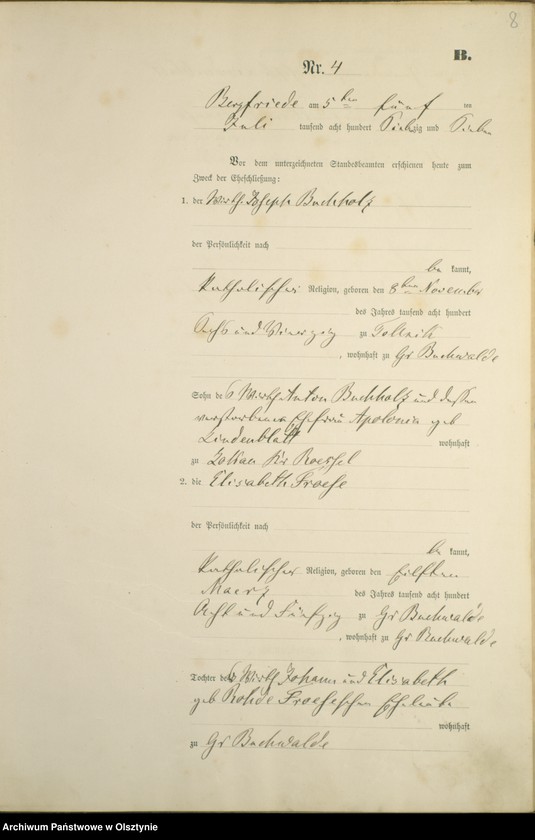 8
B.
Nr. 4
Bergfriede am 5ten fünf ten
Juli tausend acht hundert Siebzig und Sieben
Vor dem unterzeichneten Standesbeamten erschienen heute zum
Zweck der Eheschließung:
1. der Wirth Joseph Buchholz
der Persönlichkeit nach
be kannt,
katholischer Religion, geboren den 8ten November
des Jahres tausend acht hundert
Acht und Vierzig zu Tollnik
, wohnhaft zu Gr Buchwalde
Sohn des Wirth Anton Buchholz und dessen
verstorbenen Ehefrau Apolonia geb
Lindenblatt wohnhaft
zu Lokau Kr Roessel
2. die Elisabeth Froese
der Persönlichkeit nach
be kannt,
katholischer Religion, geboren den Eilften
Maerz des Jahres tausend acht hundert
Acht und Fünfzig zu Gr Buchwalde
, wohnhaft zu Gr Buchwalde
Tochter der Wirth Johann und Elisabeth
geb Rohde Froeseschen Eheleute
wohnhaft
zu Gr Buchwalde
Archiwum Państwowe w Olsztynie